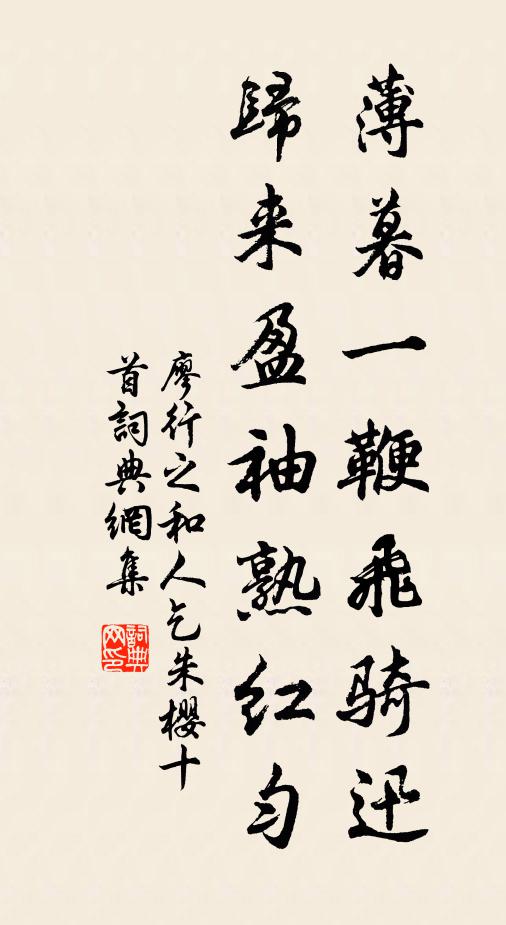 薄暮一鞭飛騎迅
歸来盈袖熟红勻
廖行之和人乞朱櫻十
首詞典網集
詞典
网印